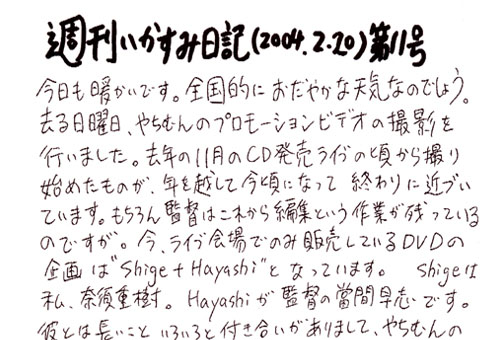 週刊いかすみ日記(2004.2.20)第11号
今日も暖かいです。全国的におだやかな天気なのでしょう。
去る日曜日、やちむんのプロモーションビデオの撮影を
行いました。去年の11月のCD発売ライヴの頃から撮り
始めたものが、年を越して今頃になって 終わりに近づい
ています。もちろん監督はこれから編集という作業が残っている
のですが。今、ライヴ会場でのみ販売しているDVDの
企画は"Shige+Hayashi"となっています。 Shigeは
私、奈須重樹。Hayashiが監督の當間早志です。
彼とは長いこといろいろと付き合いがありまして、やちむんの